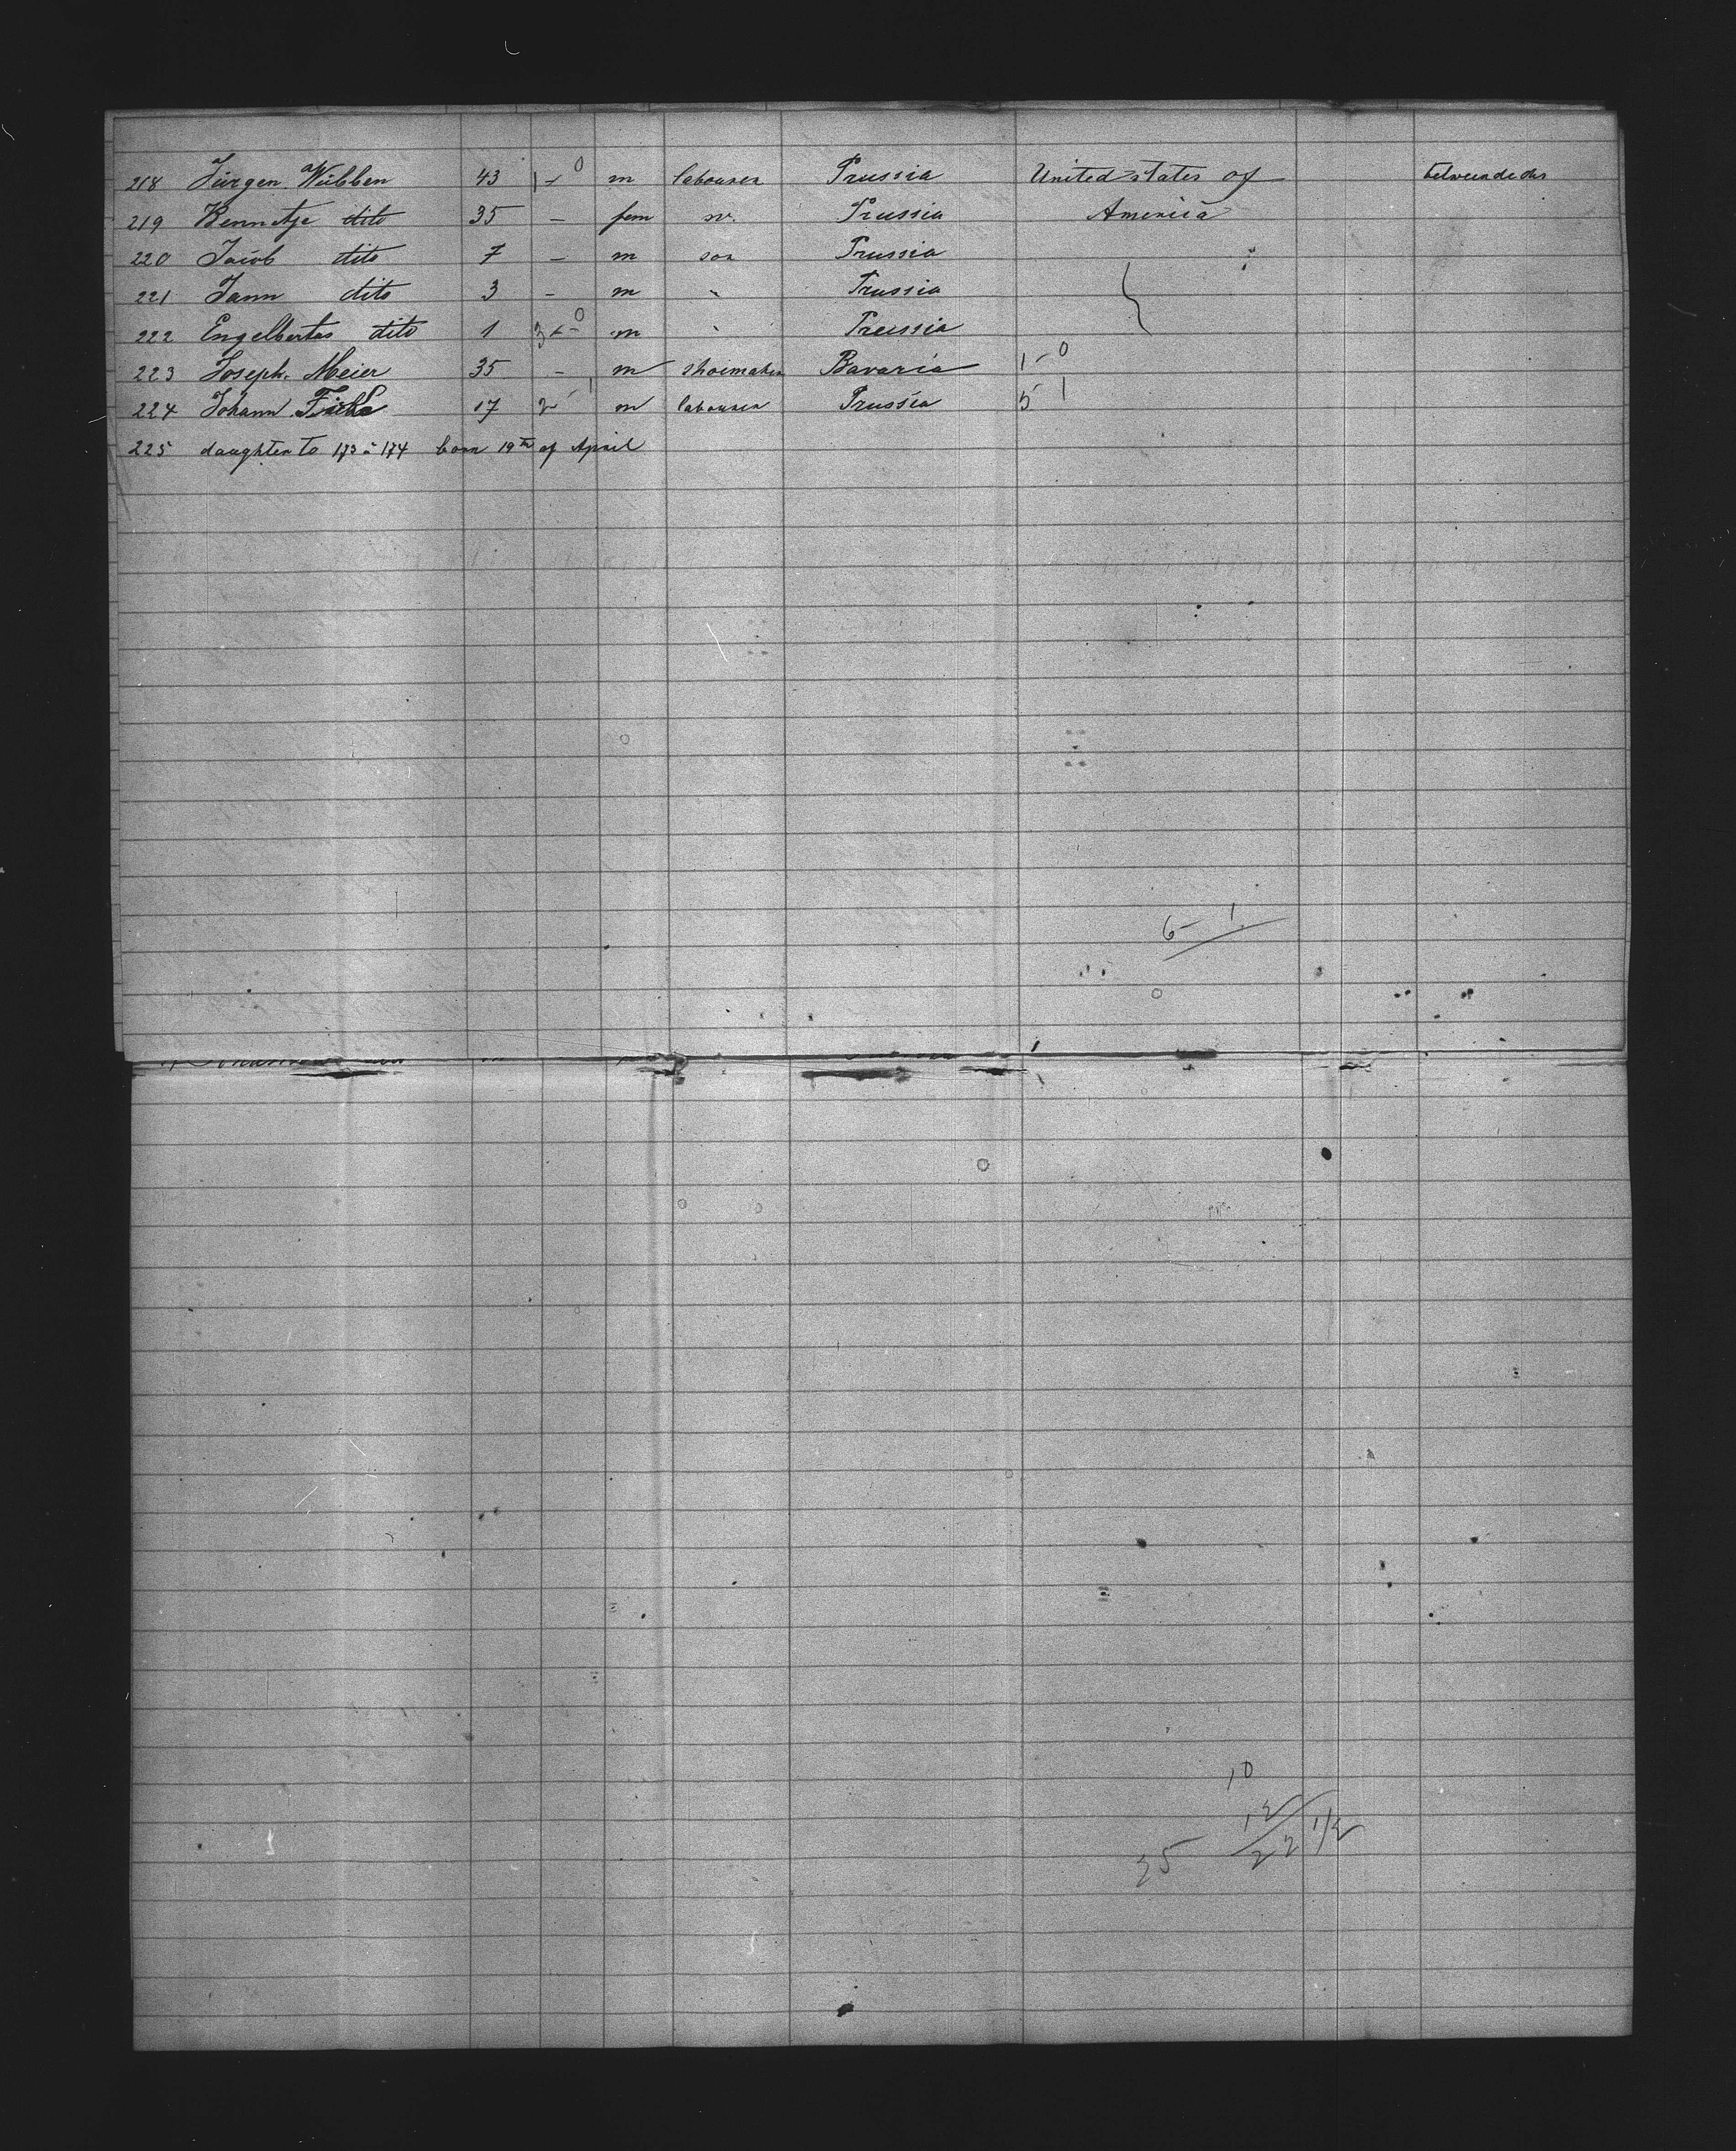 218 Jürgen Wübben 43 1 - 0 m labourer Prussia United states of betweendecks
219 Bennetje dito 35 - fem w. Prussia America
220 Jacob dito 7 - m son Prussia
221 Jann dito 3 - m " Prussia
222 Engelbertas dito 1 3 - 0 m " Preussia
223 Joseph Meier 35 - m shoemaker Bavaria 1 - 0
224 Johann 17 2 - 1 m labourer Prussia 5 1
225 daughter to 173 à 174 born 19th of April
6 - 1
10
12
35 22 1/2